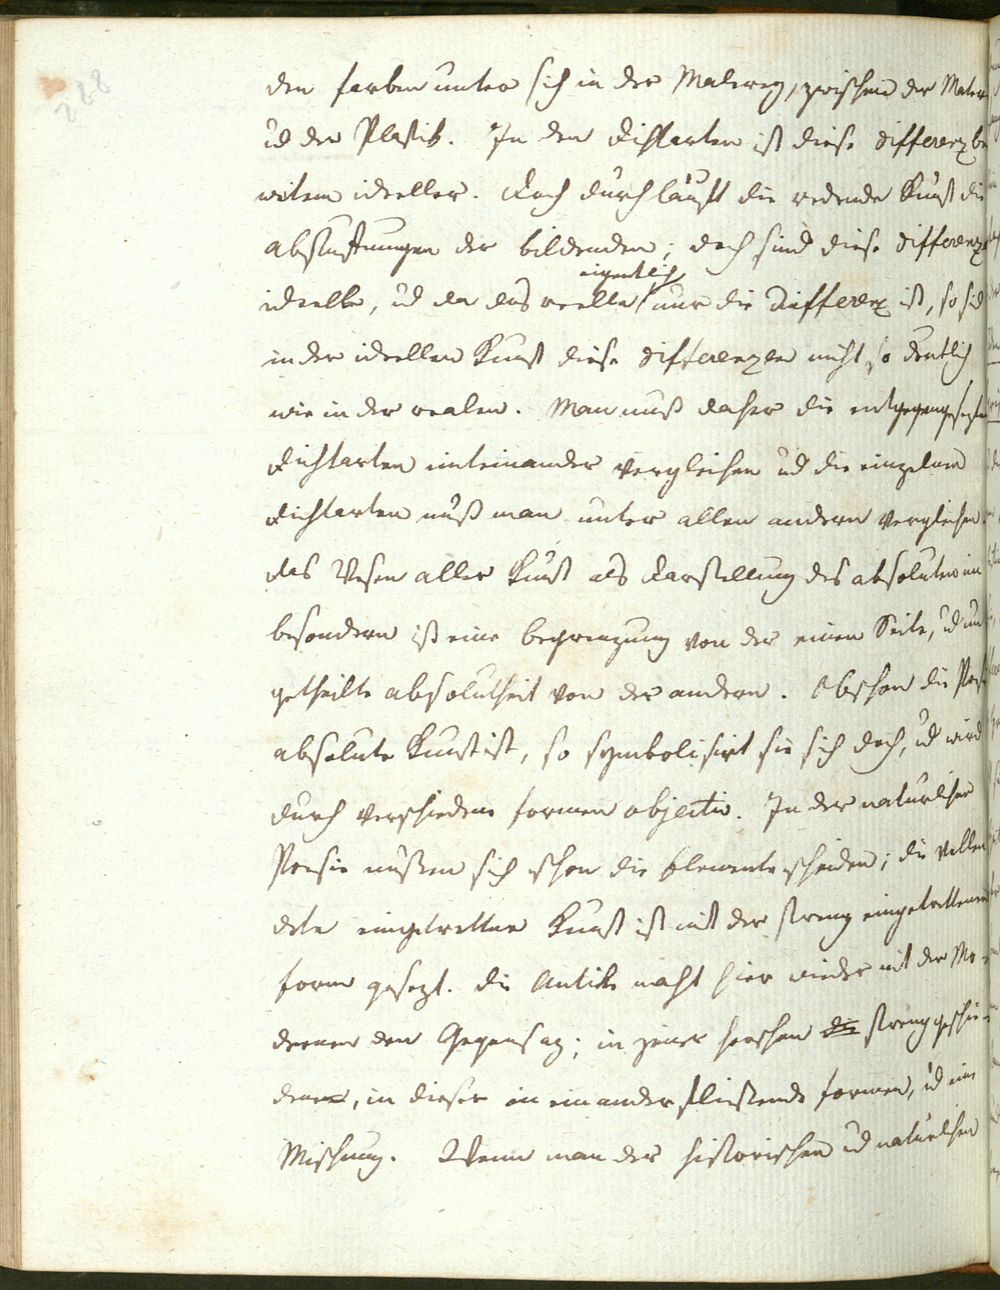 228
den farben unter sich in der Malerey, zwischen der Maler
ud der Plastik. In den Dichtarten ist diese differenz be
weitem ideeller. Doch durchläuft die redende Kunst die
abstuffungen der bildenden; doch sind diese differenzen
ideelle, ud da das reelle eigentlich nur die Differenz ist, so sid
in der ideellen Kunst diese differenzen nicht so deutlich
wie in der realen. Man muß daher die entgegengesezten
Dichtarten untereinander vergleichen ud die einzelnen
Dichtarten muß man unter allen andern vergleichen.
das Wesen aller Kunst als Darstellung des absoluten im
besondern ist eine begrenzung von der einen Seite, ud un
getheilte absolutheit von der andern. Obschon die Poesie
absolute Kunst ist, so symbolisirt sie sich doch, ud wird
durch verschiedene formen objectiv. In der natürlichen
Poesie müßen sich schon die Elemente scheiden; die vollen
dete eingetrettene Kunst ist mit der streng eingetrettenen
form gesezt. die Antike macht hier wieder mit der Mo-
dernen den Gegensaz; in jener herschen die streng geschie-
denen, in dieser in einander fliessende formen, ud eine
Mischung. Wenn man der historischen ud natürlichen